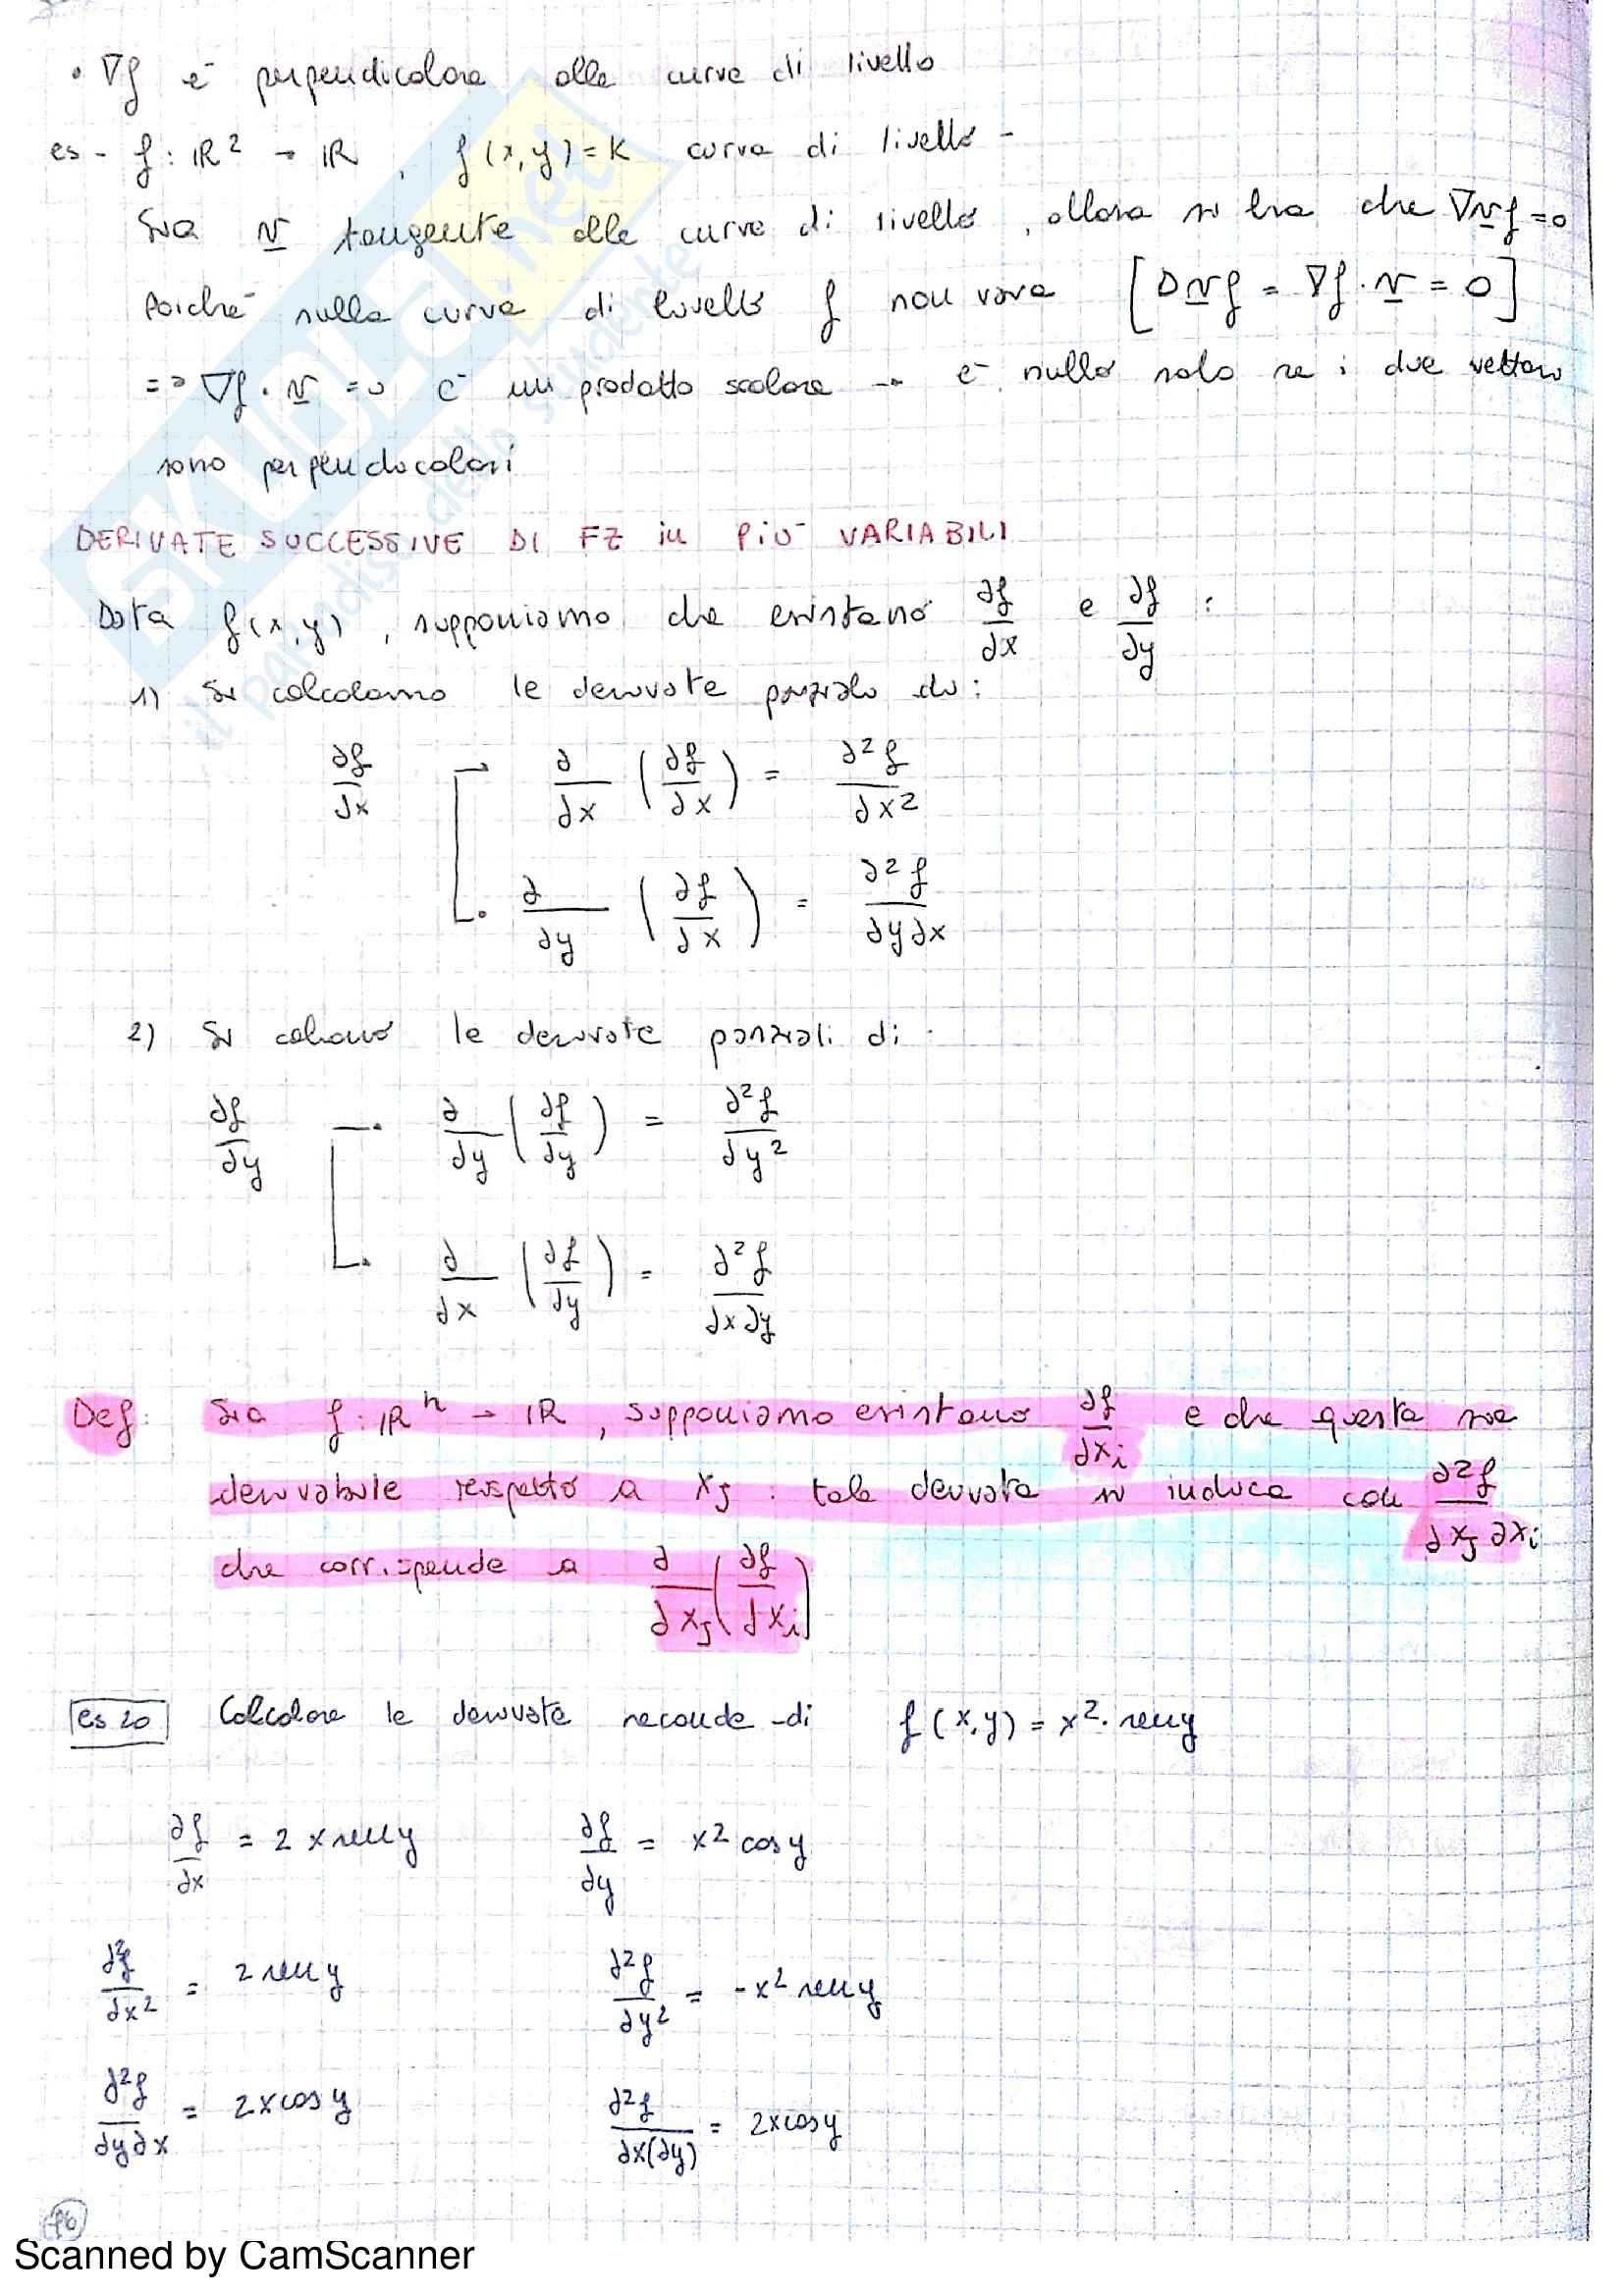 • ∇f è perpendicolare alle curve di livello
es - f: ℝ² → ℝ , f(x,y)=K curva di livello -
Sia v tangente alle curve di livello, allora si ha che ∇vf=0
Poiché sulla curva di livello f non varia [Dvf = ∇f·v = 0]
=> ∇f·v =0 è un prodotto scalare → è nullo solo se i due vettori
sono perpendicolari
DERIVATE SUCCESSIVE DI FZ in PIÙ VARIABILI
Data f(x,y), supponiamo che esistano ∂f/∂x e ∂f/∂y :
1) Si calcolano le derivate parziali di:
∂f/∂x → ∂/∂x (∂f/∂x) = ∂²f/∂x²
∂/∂y (∂f/∂x) = ∂²f/∂y∂x
2) Si le derivate parziali di
∂f/∂y → ∂/∂y (∂f/∂y) = ∂²f/∂y²
∂/∂x (∂f/∂y) = ∂²f/∂x∂y
Def: Sia f: ℝⁿ → ℝ, supponiamo esistano ∂f/∂xi e che questa sia
derivabile rispetto a xj : tale derivata si indica con ∂²f/∂xj∂xi
che corrisponde a ∂/∂xj (∂f/∂xi)
es 20 Calcolare le derivate seconde di f(x,y) = x²·seny
∂f/∂x = 2xseny ∂f/∂y = x²cosy
∂²f/∂x² = 2seny ∂²f/∂y² = -x²seny
∂²f/∂y∂x = 2xcosy ∂²f/∂x(∂y) = 2xcosy
96
Scanned by CamScanner
SKUOLA.net
il paradiso dello studente